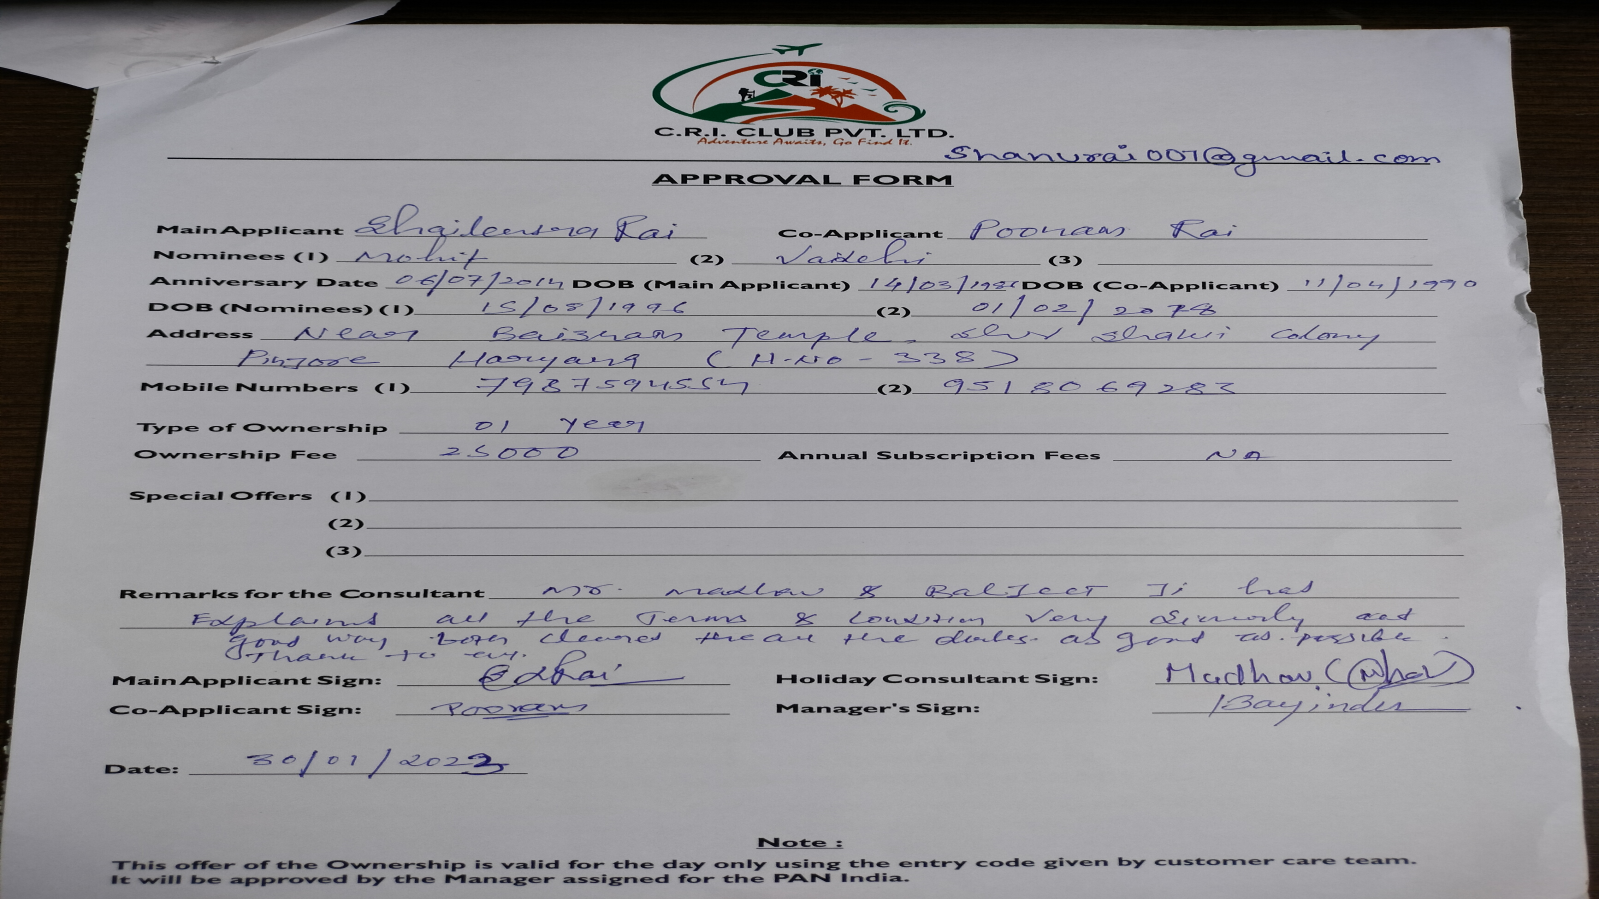 CRI
C.R.I. CLUB PVT. LTD.
Adventure Awaits, Go Find It.
Shanurai007@gmail.com
APPROVAL FORM
Main Applicant Shailendra Rai Co-Applicant Poonam Rai
Nominees (1) Mohit (2) Vaidehi (3)
Anniversary Date 06/07/2014 DOB (Main Applicant) 14/03/1986 DOB (Co-Applicant) 11/04/1990
DOB (Nominees) (1) 15/08/1996 (2) 01/02/
Address Near Temple, Colony
Pinjore Haryana (H.NO - 338)
Mobile Numbers (1) 7987594554 (2) 9518069283
Type of Ownership 01 Year
Ownership Fee 25000 Annual Subscription Fees NA
Special Offers (1)
(2)
(3)
Remarks for the Consultant Mr. Madhav & BalJeet Ji has
Explained all the Terms & Very and
good way the all the as good as possible.
Thank to
Main Applicant Sign: Holiday Consultant Sign: Madhav
Co-Applicant Sign: Poonam Manager's Sign:
Date: 30/01/2023
Note :
This offer of the Ownership is valid for the day only using the entry code given by customer care team.
It will be approved by the Manager assigned for the PAN India.